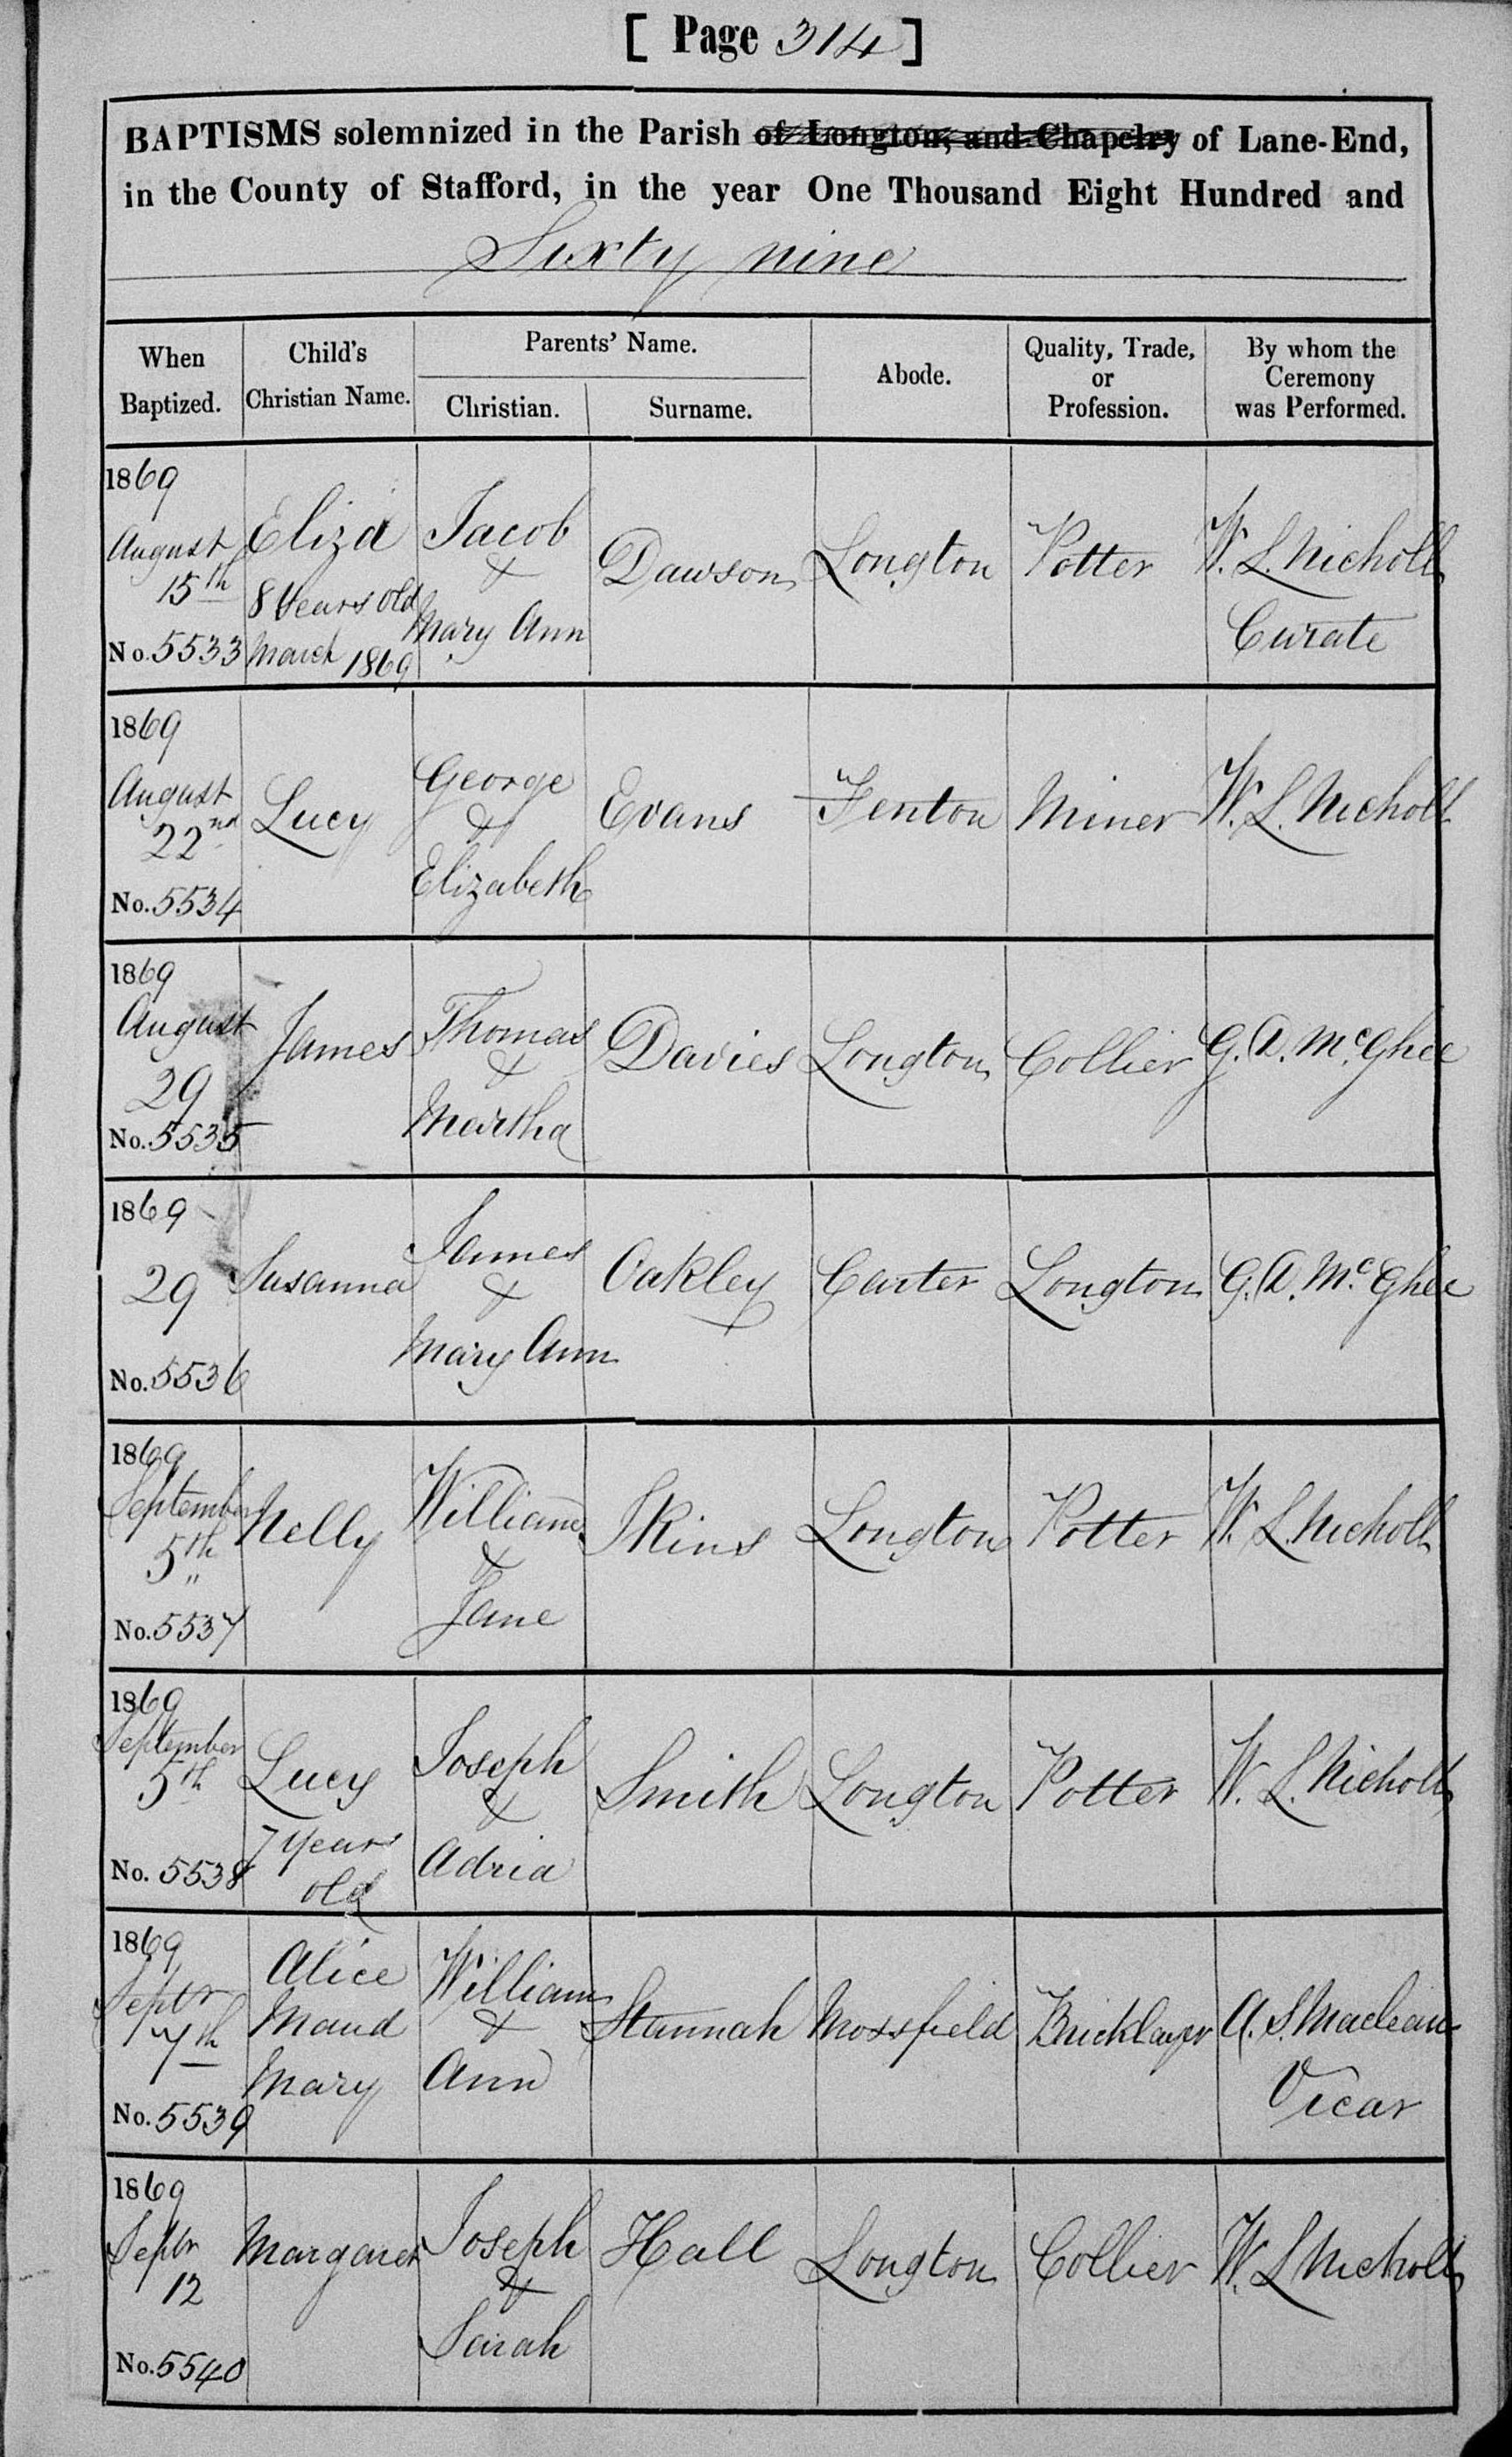 [ Page 314 ]
BAPTISMS solemnized in the Parish of Longton, and Chapelry of Lane-End,
in the County of Stafford, in the year One Thousand Eight Hundred and
Sixty nine
When Baptized.
Child's Christian Name.
Parents' Name.
Christian.
Surname.
Abode.
Quality, Trade, or Profession.
By whom the Ceremony was Performed.
1869
August
15th
No. 5533
Eliza
8 Years old
March 1869
Jacob
&
Mary Ann
Dawson
Longton
Potter
W. L. Nicholls
Curate
1869
August
22nd
No. 5534
Lucy
George
&
Elizabeth
Evans
Fenton
Miner
W. L. Nicholls
1869
August
29
No. 5535
James
Thomas
&
Martha
Davies
Longton
Collier
G. A. McGhee
1869
29
No. 5536
Susanna
James
&
Mary Ann
Oakley
Carter
Longton
G. A. McGhee
1869
September
5th
No. 5537
Nelly
William
&
Jane
Skins
Longton
Potter
W. L. Nicholls
1869
September
5th
No. 5538
Lucy
7 Years
old
Joseph
&
Adria
Smith
Longton
Potter
W. L. Nicholls
1869
Septr
7th
No. 5539
Alice
Maud
Mary
William
&
Ann
Stannah
Mossfield
Bricklayer
A. S. Maclean
Vicar
1869
Septr
12
No. 5540
Margaret
Joseph
&
Sarah
Hall
Longton
Collier
W. L. Nicholls